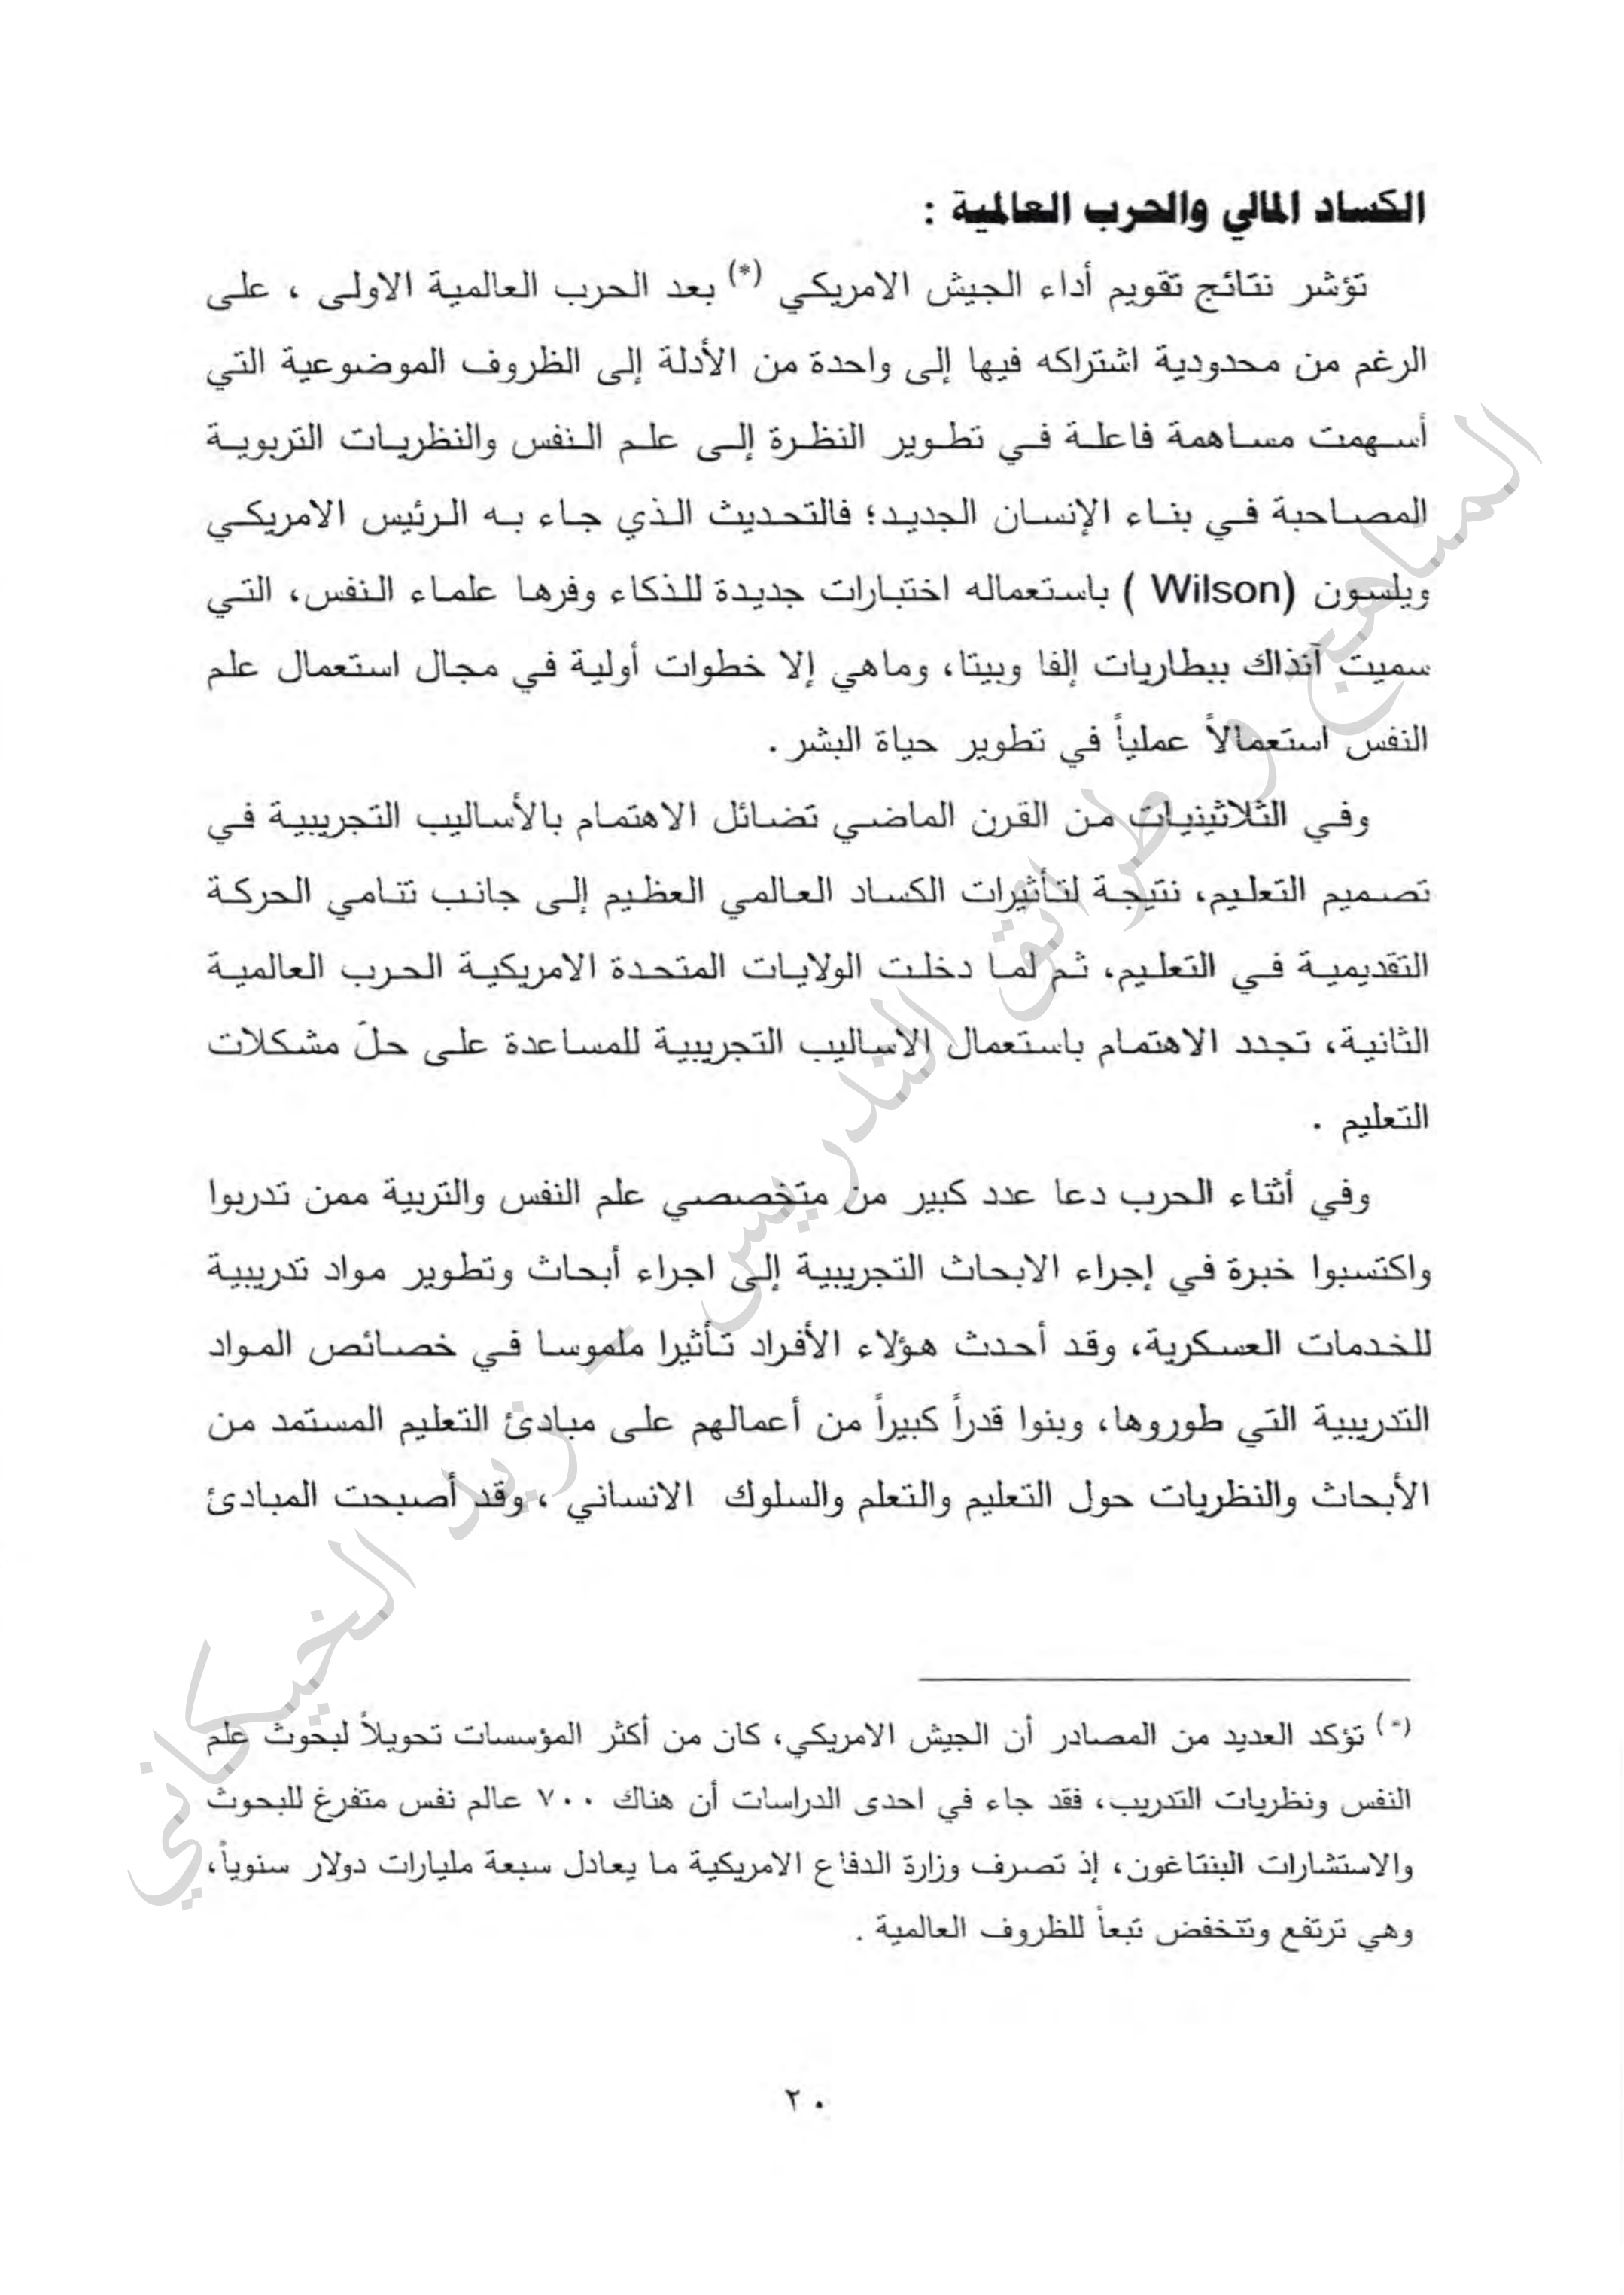 الكساد المالي والحرب العالمية :
تؤشر نتائج تقويم أداء الجيش الامريكي (*) بعد الحرب العالمية الاولى ، على
الرغم من محدودية اشتراكه فيها إلى واحدة من الأدلة إلى الظروف الموضوعية التي
أسهمت مساهمة فاعلة في تطوير النظرة إلى علم النفس والنظريات التربوية
المصاحبة في بناء الإنسان الجديد؛ فالتحديث الذي جاء به الرئيس الامريكي
ويلسون (Wilson ) باستعماله اختبارات جديدة للذكاء وفرها علماء النفس، التي
سميت آنذاك ببطاريات إلفا وبيتا، وماهي إلا خطوات أولية في مجال استعمال علم
النفس استعمالاً عملياً في تطوير حياة البشر .
وفي الثلاثينيات من القرن الماضي تضائل الاهتمام بالأساليب التجريبية في
تصميم التعليم، نتيجة لتأثيرات الكساد العالمي العظيم إلى جانب تنامي الحركة
التقديمية في التعليم، ثم لما دخلت الولايات المتحدة الامريكية الحرب العالمية
الثانية، تجدد الاهتمام باستعمال الاساليب التجريبية للمساعدة على حلّ مشكلات
التعليم .
وفي أثناء الحرب دعا عدد كبير من متخصصي علم النفس والتربية ممن تدربوا
واكتسبوا خبرة في إجراء الابحاث التجريبية إلى اجراء أبحاث وتطوير مواد تدريبية
للخدمات العسكرية، وقد أحدث هؤلاء الأفراد تأثيرا ملموسا في خصائص المواد
التدريبية التي طوروها، وبنوا قدراً كبيراً من أعمالهم على مبادئ التعليم المستمد من
الأبحاث والنظريات حول التعليم والتعلم والسلوك الانساني ، وقد أصبحت المبادئ
(*) تؤكد العديد من المصادر أن الجيش الامريكي، كان من أكثر المؤسسات تحويلاً لبحوث علم
النفس ونظريات التدريب، فقد جاء في احدى الدراسات أن هناك ٧٠٠ عالم نفس متفرغ للبحوث
والاستشارات البنتاغون، إذ تصرف وزارة الدفاع الامريكية ما يعادل سبعة مليارات دولار سنوياً،
وهي ترتفع وتتخفض تبعاً للظروف العالمية .
٢٠
المناهج و طرائق التدريس - زيد الخيكاني